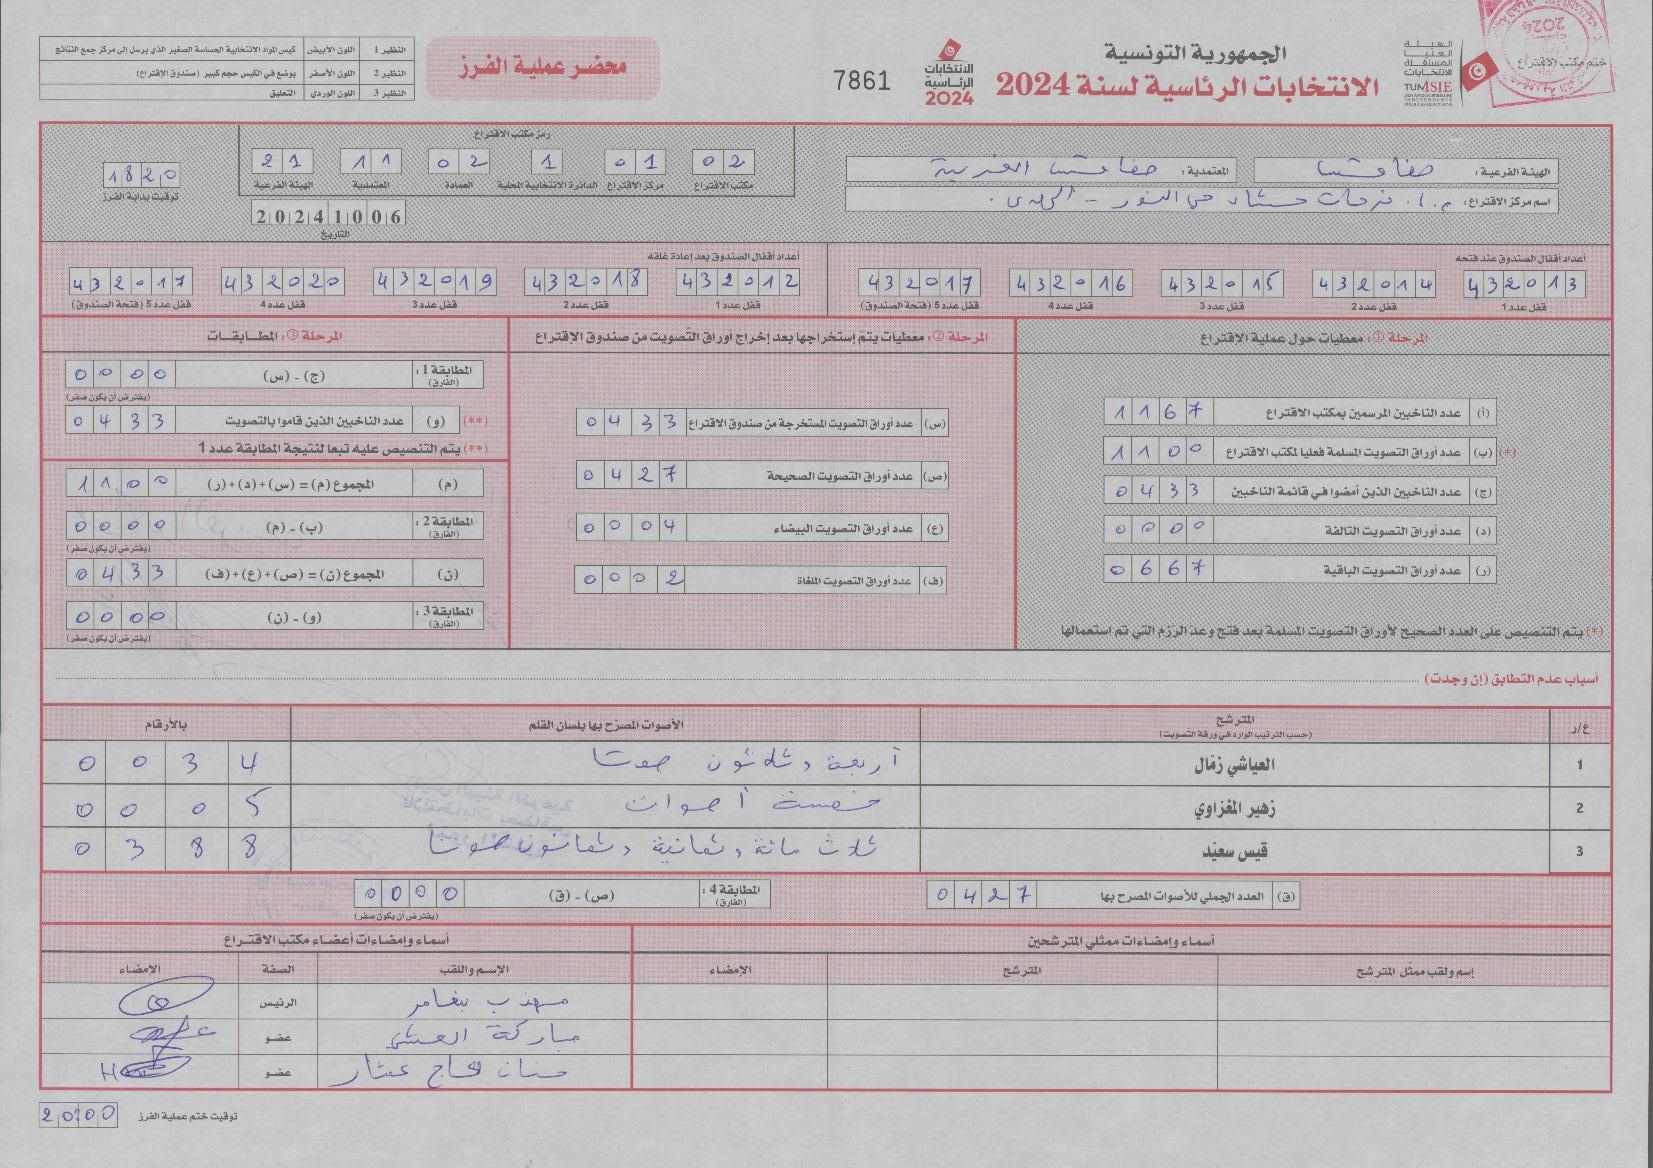 الجمهورية التونسية
الانتخابات الرئاسية لسنة 2024
الهيئة العليا المستقلة للانتخابات
TUNISIE
ختم مكتب الاقتراع
الانتخابات الرئاسية 2024
7861
محضر عملية الفرز
النظير 1 اللون الأبيض كيس المواد الانتخابية الحساسة الصغير الذي يرسل إلى مركز جمع النتائج
النظير 2 اللون الأصفر يوضع في الكيس حجم كبير (صندوق الاقتراع)
النظير 3 اللون الوردي التعليق
الهيئة الفرعية: صفاقس المعتمدية: صفاقس الغربية
اسم مركز الاقتراع: م.ا. فرحات حشاد حي النور -
رمز مكتب الاقتراع
02 01 1 02 11 21
مكتب الاقتراع مركز الاقتراع الدائرة الانتخابية المحلية العمادة المعتمدية الهيئة الفرعية
20241006
التاريخ
1820
توقيت بداية الفرز
أعداد أقفال الصندوق عند فتحه
432013 432014 432015 432016 432017
قفل عدد 1 قفل عدد 2 قفل عدد 3 قفل عدد 4 قفل عدد 5 (فتحة الصندوق)
أعداد أقفال الصندوق بعد إعادة غلقه
432012 432018 432019 432020 432017
قفل عدد 1 قفل عدد 2 قفل عدد 3 قفل عدد 4 قفل عدد 5 (فتحة الصندوق)
المرحلة ①: معطيات حول عملية الاقتراع
(أ) عدد الناخبين المرسمين بمكتب الاقتراع 1167
(*) (ب) عدد أوراق التصويت المسلمة فعليا لمكتب الاقتراع 1100
(ج) عدد الناخبين الذين أمضوا في قائمة الناخبين 0433
(د) عدد أوراق التصويت التالفة 0000
(ر) عدد أوراق التصويت الباقية 0667
(*) يتم التنصيص على العدد الصحيح لأوراق التصويت المسلمة بعد فتح وعد الرزم التي تم استعمالها
المرحلة ②: معطيات يتم إستخراجها بعد إخراج أوراق التصويت من صندوق الاقتراع
(س) عدد أوراق التصويت المستخرجة من صندوق الاقتراع 0433
(ص) عدد أوراق التصويت الصحيحة 0427
(ع) عدد أوراق التصويت البيضاء 0004
(ف) عدد أوراق التصويت الملغاة 0002
المرحلة ③: المطابقات
المطابقة 1: (الفارق) (ج) - (س) 0000
(يفترض أن يكون صفر)
(**) (و) عدد الناخبين الذين قاموا بالتصويت 0433
(**) يتم التنصيص عليه تبعا لنتيجة المطابقة عدد 1
(م) المجموع (م) = (س) + (د) + (ر) 1100
المطابقة 2: (الفارق) (ب) - (م) 0000
(يفترض أن يكون صفر)
(ن) المجموع (ن) = (ص) + (ع) + (ف) 0433
المطابقة 3: (الفارق) (و) - (ن) 0000
(يفترض أن يكون صفر)
أسباب عدم التطابق (إن وجدت)
ع/ر المترشح الأصوات المصرح بها بلسان القلم بالأرقام
(حسب الترتيب الوارد في ورقة التصويت)
1 العياشي زمّال أربعة وثلاثون صوتا 0034
2 زهير المغزاوي خمسة أصوات 0005
3 قيس سعيّد ثلاث مائة وثمانية وثمانون صوتا 0388
(ق) العدد الجملي للأصوات المصرح بها 0427
المطابقة 4: (الفارق) (ص) - (ق) 0000
(يفترض أن يكون صفر)
أسماء وإمضاءات ممثلي المترشحين
إسم ولقب ممثل المترشح المترشح الإمضاء
أسماء وإمضاءات أعضاء مكتب الاقتراع
الإسم واللقب الصفة الإمضاء
مهذب بنعامر الرئيس
مباركة العش عضو
حنان الحاج عمار عضو
توقيت ختم عملية الفرز 2000